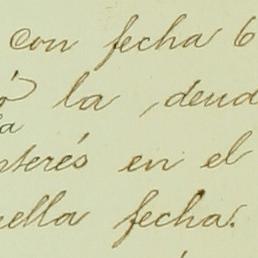 con fecha 6
ó la deud
a
nterés en el
uella fecha.